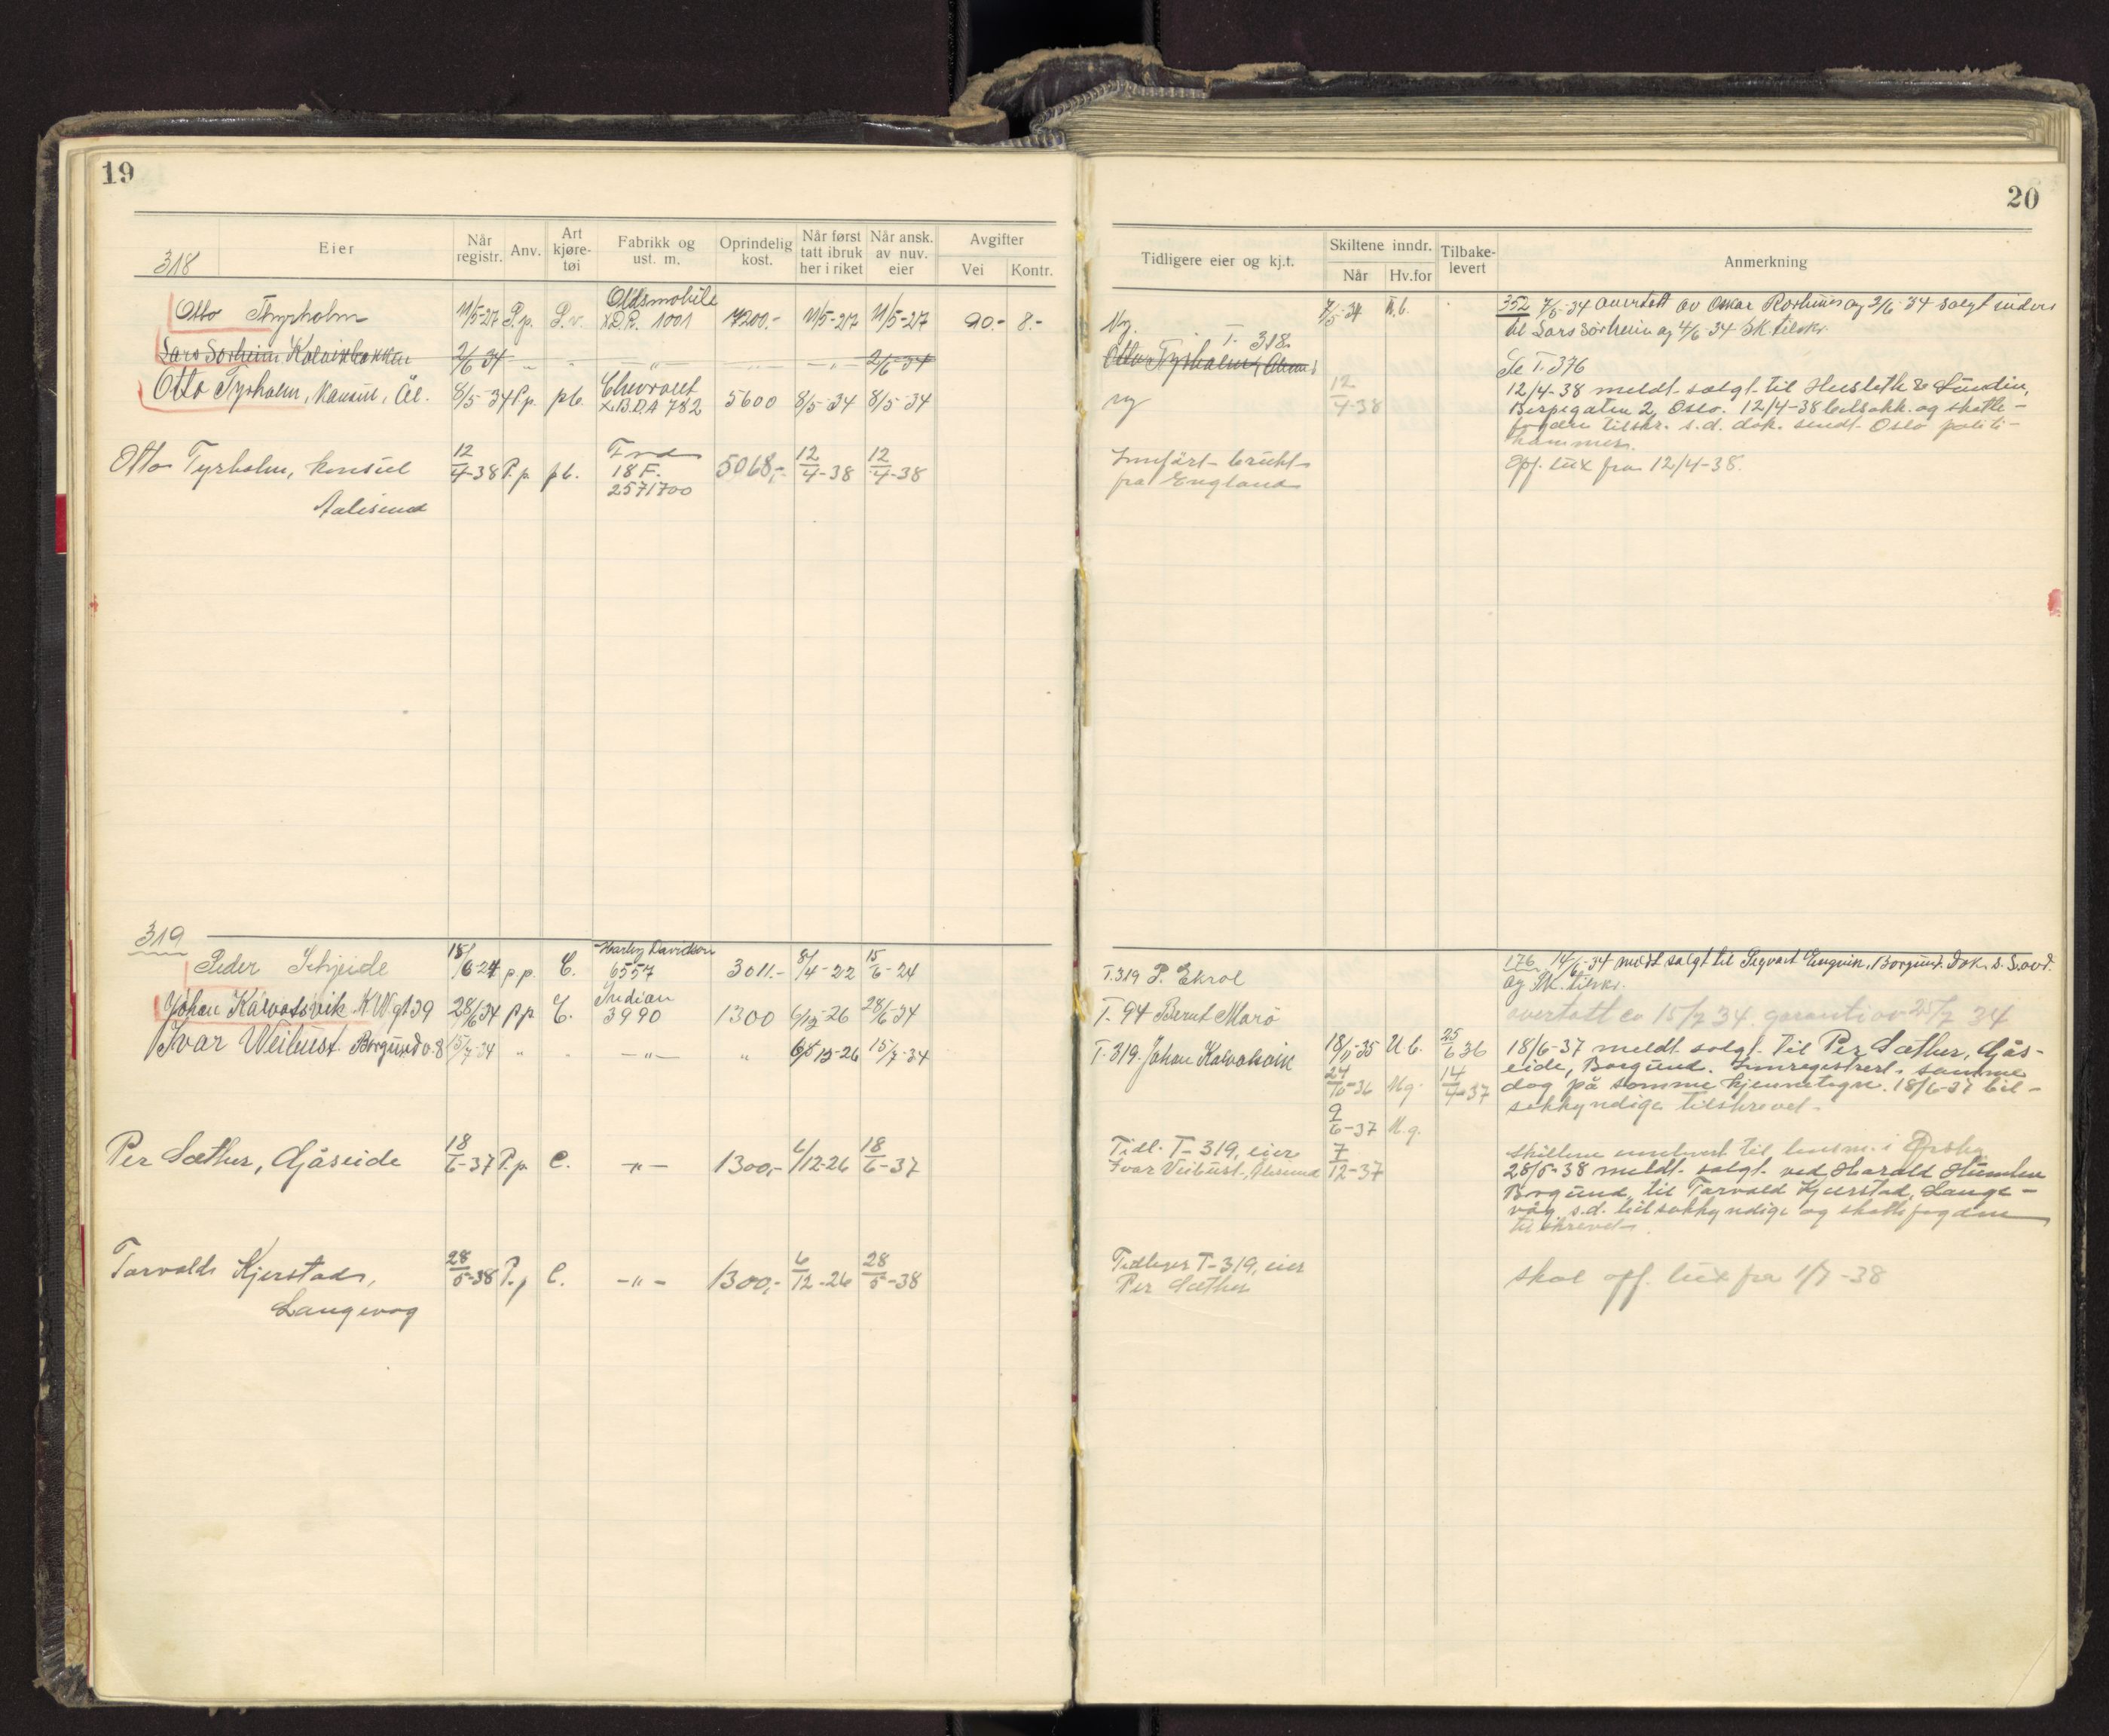 19
318
Eier
Når registr.
Anv.
Art kjøre-tøi
Fabrikk og ust. m.
Oprindelig kost.
Når først tatt ibruk her i riket
Når ansk. av nuv. eier
Avgifter
Vei
Kontr.
Otto Thyrholm 11/5-27 P.p. P.v. Oldsmobile XDR. 1001 7200.- 11/5-27 11/5-27 90.- 8.-
Lars Sorheim 2/6 34 - " - - " - 2/6-34
Otto Tyrholm, Konsul, Ål. 8/5-34 P.p. pb. Chevrolet X.B.D.A 782 5600 8/5-34 8/5-34
Otto Tyrholm, konsul 12/4-38 P.p pb. Ford 18 F. 2571700 5068,- 12/4-38 12/4-38
Aalesund
319
Peder Schjeide 18/6-24 p.p. C. Harley Davidson 6557 3011.- 8/4-22 15/6-24
Johan Kalvatsvik K.W.gt 39 28/6 34 p.p C. Indian 3990 1300 6/12-26 28/6-34
Ivar Weibust. Borgundv. 8 15/7-34 " - - " - " 6/12-26 15/7-34
Per Sæther, Gåseide 18/6-37 P.p C. - " - 1300,- 6/12-26 18/6-37
Torvald Kjerstad, 28/5-38 P.p C. - " - 1300,- 6/12-26 28/5-38
Langevåg
20
Tidligere eier og kj.t.
Skiltene inndr.
Når
Hv.for
Tilbake-levert
Anmerkning
Ny. 7/5-34 U.b. 352 7/5-34 overtatt av Oskar Rovhunes og 2/6-34 solgt videre
til Lars Sorheim og 4/6-34 SK. tilskr.
T. 318.
Otto Tyrholm, Se T. 376
ny 12/4-38 12/4-38 meldt solgt til Husleth & Lundin,
Oslo. 12/4-38 bilsakk. og skatte-
fogden tilskr. s.d. dok. sendt Oslo politi-
kammer.
Innført brukt Opf. lux fra 12/4-38.
fra England
T.319 P. Ekrol 176 14/6-34 meldt solgt til Sigvart Engvik, Borgund.
og SK. tilskr.
T. 94 Bernt Marö overtatt av 15/7 34. garanti av 25/7 34
T. 319. Johan Kalvatsvik 18/11-35 U.b. 25/6 36 18/6-37 meldt solgt til Per Sæther, Gås-
eide, Borgund. Innregistrert samme
24/10-36 U.g. 14/4-37 dag på samme kjennetegn. 18/6-37 bil-
sakkyndige tilskrevet.
9/6-37 U.g.
Tidl. T-319, eier 7/12-37 Skiltene innlevert til lensm. i Ørskog
Ivar Veibust, Ålesund 28/5-38 meldt solgt ved Harald Humlen
Borgund, til Torvald Kjerstad, Lange-
våg s.d. bilsakkyndige og skattefogden
tilskrevet.
Tidligere T-319, eier skal opf. lux fra 1/7-38
Per Sæther